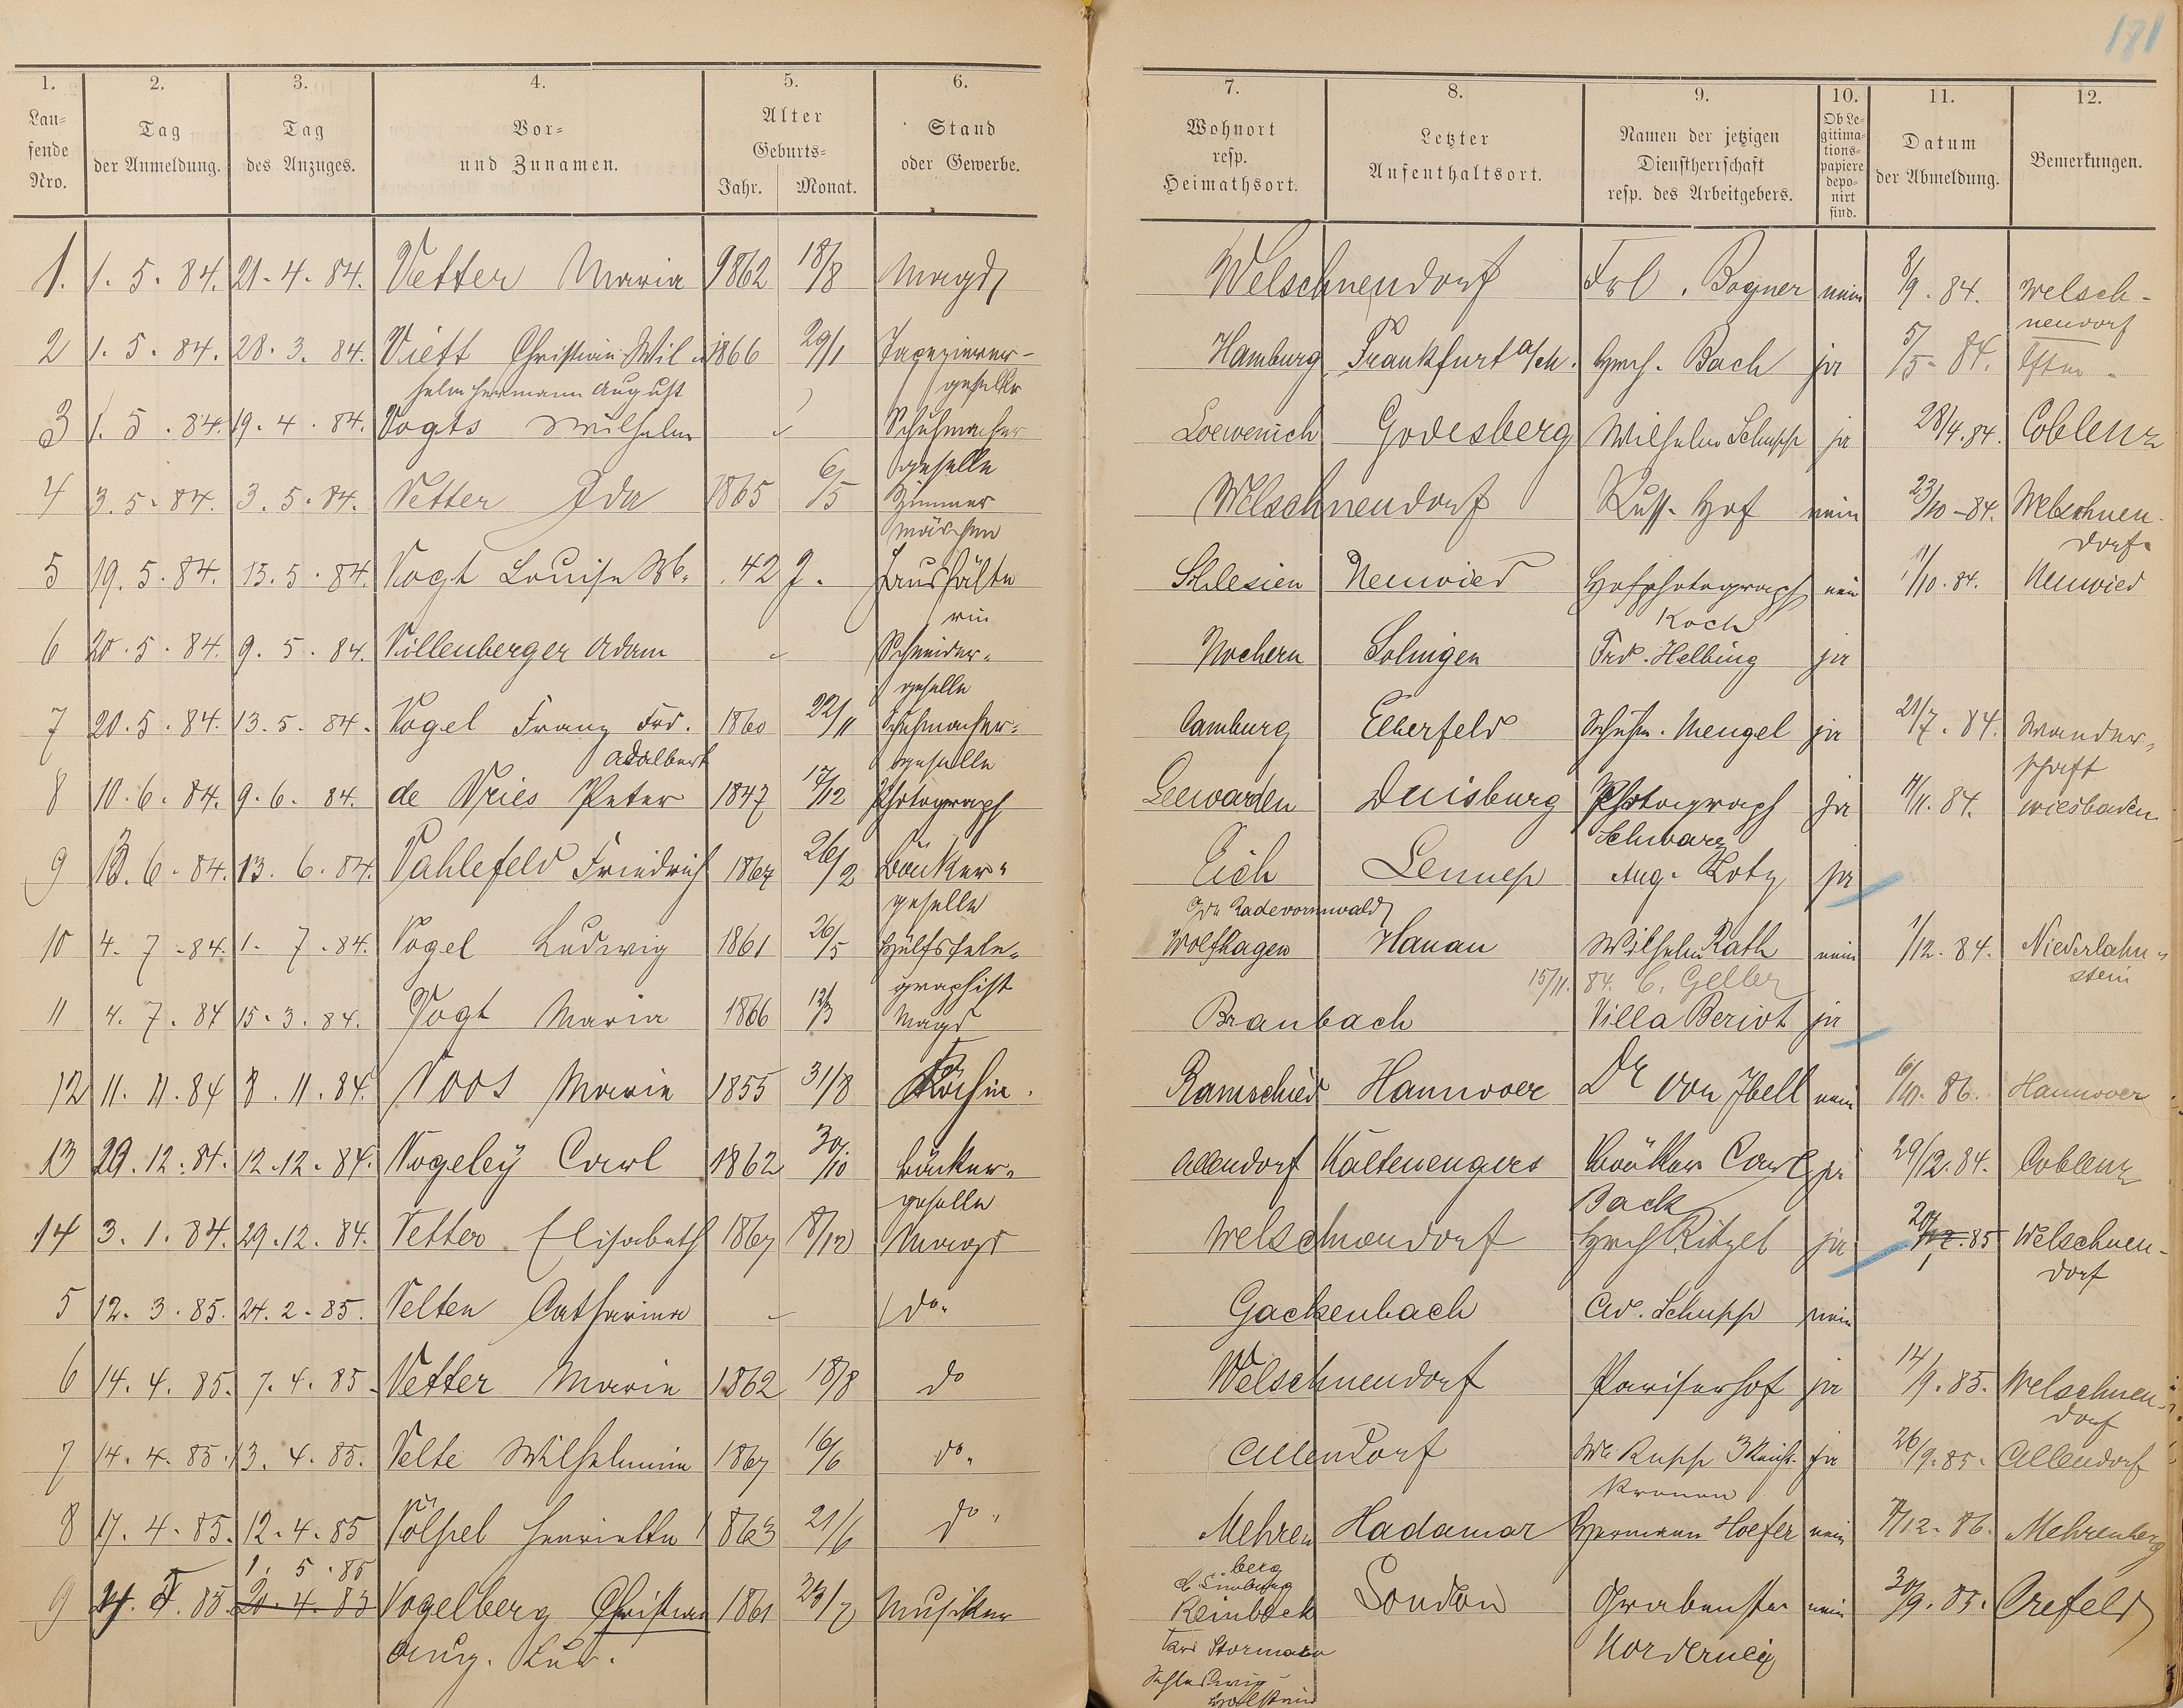 181
1. 2. 3. 4. 5. 6. 7. 8. 9. 10. 11. 12.
Lau-
fende
Nro.
Tag
der Anmeldung.
Tag
des Anzuges.
Vor-
und Zunamen.
Alter
Geburts-
Jahr. Monat.
Stand
oder Gewerbe.
Wohnort
resp.
Heimathsort.
Letzter
Aufenthaltsort.
Namen der jetzigen
Dienstherrschaft
resp. des Arbeitgebers.
Ob Le-
gitima-
tions-
papiere
depo-
nirt
sind.
Datum
der Abmeldung.
Bemerkungen.
1. 1. 5. 84. 21. 4. 84. Vetter Maria 1862 18/8 Magd Welschnendorf Frl. Bogner nein 8/9. 84. Welsch-
nendorf
2 1. 5. 84. 28. 3. 84. Viett Christian Wil- 1866 29/1 Tapezierer- Hamburg Frankfurt a/M. Hrch. Bach ja 5/5. 84.
helm Herrmann August geselle
3 1. 5. 84. 19. 4. 84. Vogts Wilhelm Schuhmacher Loevenich Godesberg Wilhelm Schupp ja 28/4. 84. Coblenz
geselle
4 3. 5. 84. 3. 5. 84. Vetter Ida 1865 6/5 Zimmer Welschnendorf Russ. Hof nein 23/10 - 84. Welschnen-
mädchen dorf.
5 19. 5. 84. 15. 5. 84. Vogt Louise Ww. 42 J. Haushälte Schlesien Neuwied Hofphotograph nein 11/10. 84. Neuwied
rin Koch
6 20. 5. 84. 9. 5. 84. Villenberger Adam Schneider- Nochern Solingen Frd. Helbing ja
geselle
7 20. 5. 84. 13. 5. 84. Vogel Franz Frd. 1860 22/11 Schuhmacher- Camburg Elberfeld Schuhm. Mengel ja 21/7. 84. Wander-
Adalbert geselle schaft
8 10. 6. 84. 9. 6. 84. de Vries Peter 1847 17/12 Photograph Leewarden Duisburg Photograph ja 11/11. 84. Wiesbaden
Schwarz
9 13. 6. 84. 13. 6. 84. Vahlefeld Friedrich 1867 26/2 Bäcker- Eich Lennep Aug. Lotz ja
geselle Radevormwald
10 4. 7. 84. 1. 7. 84. Vogel Ludwig 1861 26/5 Hülfstele- Wolfhagen Hanau Wilhelm Rath nein 1/12. 84. Niederlahn-
graphist 15/11. 84. C. Gelber stein
11 4. 7. 84 15. 3. 84. Vogt Maria 1866 12/3 Magd Braubach Villa Beriot ja
12 11. 11. 84 8. 11. 84. Voos Marie 1855 31/8 Köchin. Ramschied Hannover Dr von Ibell nein 86. Hannover
13 29. 12. 84. 12. 12. 84. Vogeley Carl 1862 30/10 Bäcker- Allendorf Kaltenengers Bäcker Carl ja 29/12. 84. Coblenz
geselle Back
14 3. 1. 84. 29. 12. 84. Vetter Elisabeth 1867 8/12 Magd Welschnendorf Hrch Ritzel ja 85 Welschnen-
dorf
5 12. 3. 85. 24. 2. 85. Velten Catharina do. Gackenbach Ad. Schupp nein
6 14. 4. 85. 7. 4. 85. Vetter Marie 1862 18/8 do Welschnendorf Pariserhof ja 14/9. 85. Welschnen-
dorf
7 14. 4. 85. 13. 4. 85. Velte Wilhelmine 1867 16/6 do. Allendorf Ww. Rupp 3 Reichs- ja 26/9. 85. Allendorf
Kronen
8 17. 4. 85. 12. 4. 85 Völpel Henriette 1863 21/6 do. Mehren Hadamar Hermann Hoefer nein 7/12. 86. Mehrenberg
berg
1. 5. 85
9 85. 20. 4. 85 Vogelberg Christian 1861 23/7 Musiker Reinbeck London Grabenstr nein 30/9. 85. Crefeld
Aug. Lud. Stormarn Norderney
Schleswig
Holstein